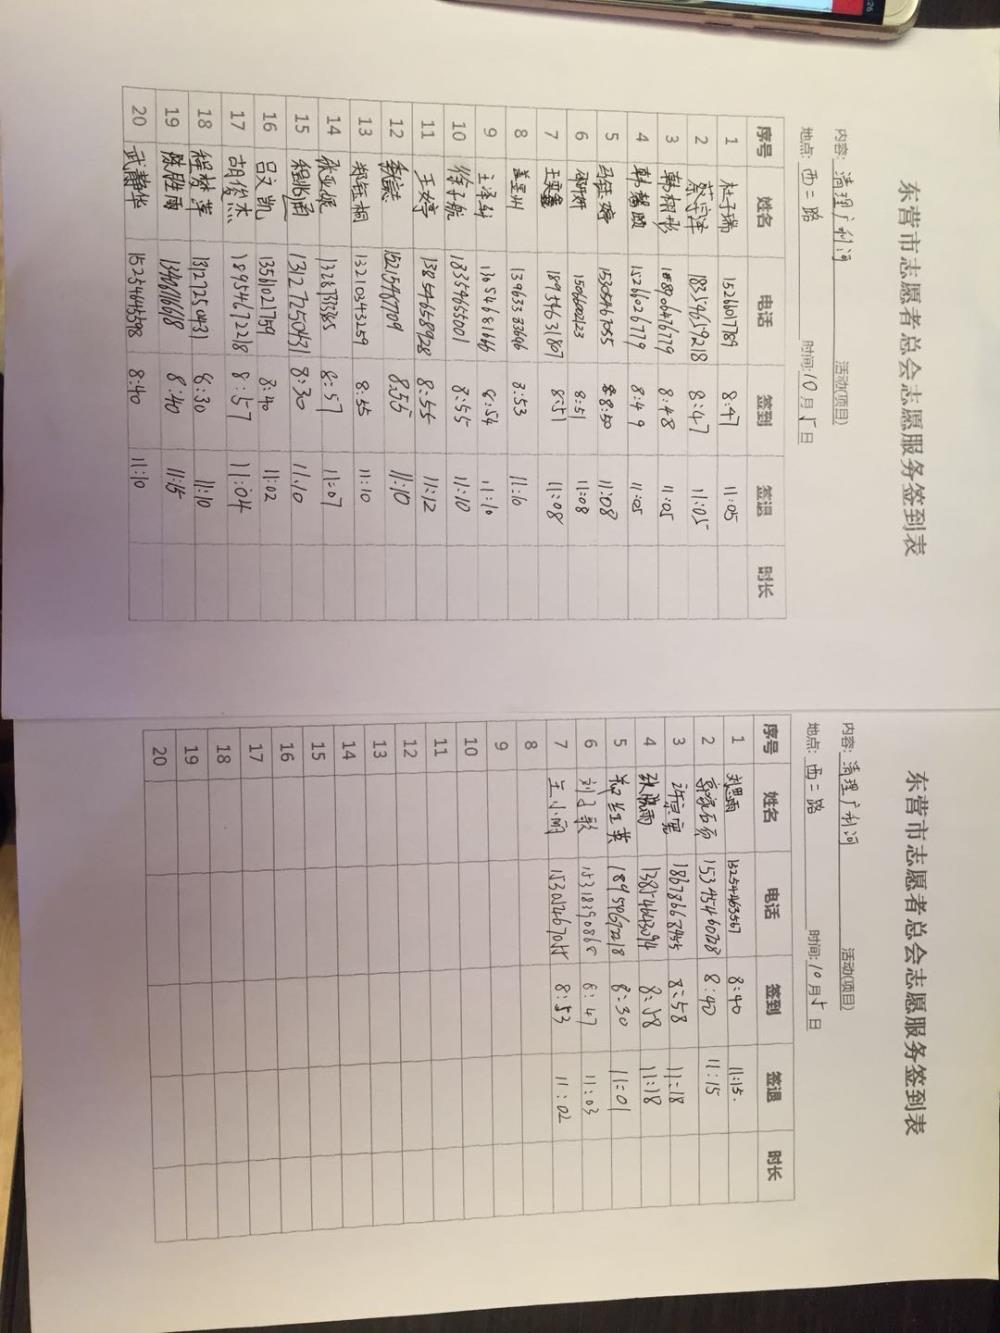 东营市志愿者总会志愿服务签到表
内容: 清理广利河 活动(项目)
地点: 西二路 时间: 10月5日
序号 姓名 电话 签到 签退 时长
1 杜子瑞 15266017789 8:47 11:05
2 蔡宇泽 18354659218 8:47 11:05
3 韩栩彤 8:48 11:05
4 韩馨颐 15266026779 8:49 11:05
5 8:50 11:08
6 15066002123 8:51 11:08
7 王奕鑫 18954631807 8:51 11:08
8 13963333696 8:53 11:10
9 王泽轩 13654681666 8:54 11:10
10 徐子航 18354655001 8:55 11:10
11 王婷 13854658928 8:55 11:12
12 15215467709 8:55 11:10
13 郑钰桐 13210343259 8:55 11:10
14 张亚妮 8:57 11:07
15 13127250431 8:30 11:10
16 吕文凯 13561021759 8:40 11:02
17 胡俊杰 18954672218 8:57 11:04
18 程梦萍 13127250431 8:30 11:10
19 陈胜雨 13406111618 8:40 11:15
20 武静华 15254645598 8:40 11:10
东营市志愿者总会志愿服务签到表
内容: 清理广利河 活动(项目)
地点: 西二路 时间: 10月5日
序号 姓名 电话 签到 签退 时长
1 刘思雨 13254463567 8:40 11:15.
2 15345460728 8:40 11:15
3 许京宽 8:58 11:18
4 13854643094 8:58 11:18
5 8:30 11:01
6 刘子歌 15318390865 8:47 11:03
7 王小雨 8:53 11:02
8
9
10
11
12
13
14
15
16
17
18
19
20